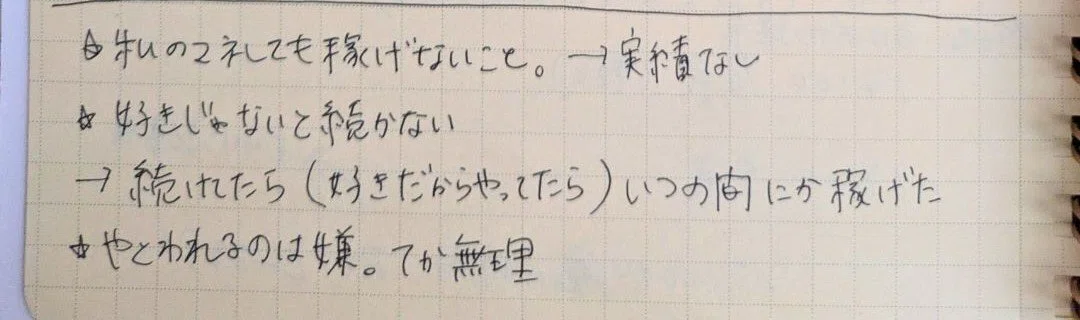 ☆私のマネしても稼げないこと。→実績なし
☆好きじゃないと続かない
→続けてたら(好きだからやってたら)いつの間にか稼げた
☆やとわれるのは嫌。てか無理